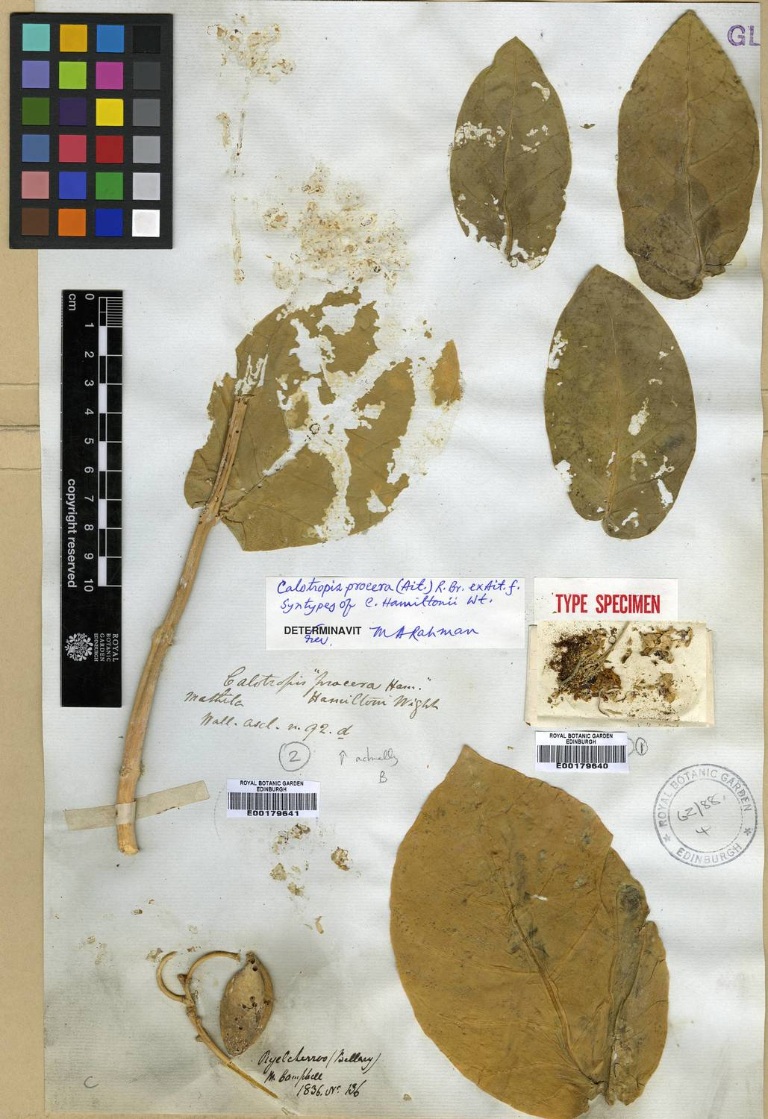 GL
0 1 2 3 4 5 6 7 8 9 10
cm
copyright reserved
ROYAL
BOTANIC
GARDEN
EDINBURGH
Calotropis procera (Ait.) R. Br. ex Ait. f.
Syntypes of C. Hamiltonii Wt.
DETERMINAVIT M A Rahman
TYPE SPECIMEN
Calotropis "procera Ham."
Hamiltoni Wight
Wall. Ascl. n. 92. d
2
↑ actually
B
ROYAL BOTANIC GARDEN
EDINBURGH
E00179640
1
ROYAL BOTANIC GARDEN
EDINBURGH
E00179641
ROYAL BOTANIC GARDEN
EDINBURGH
(Bellary)
Campbell
1836. No. 126
C